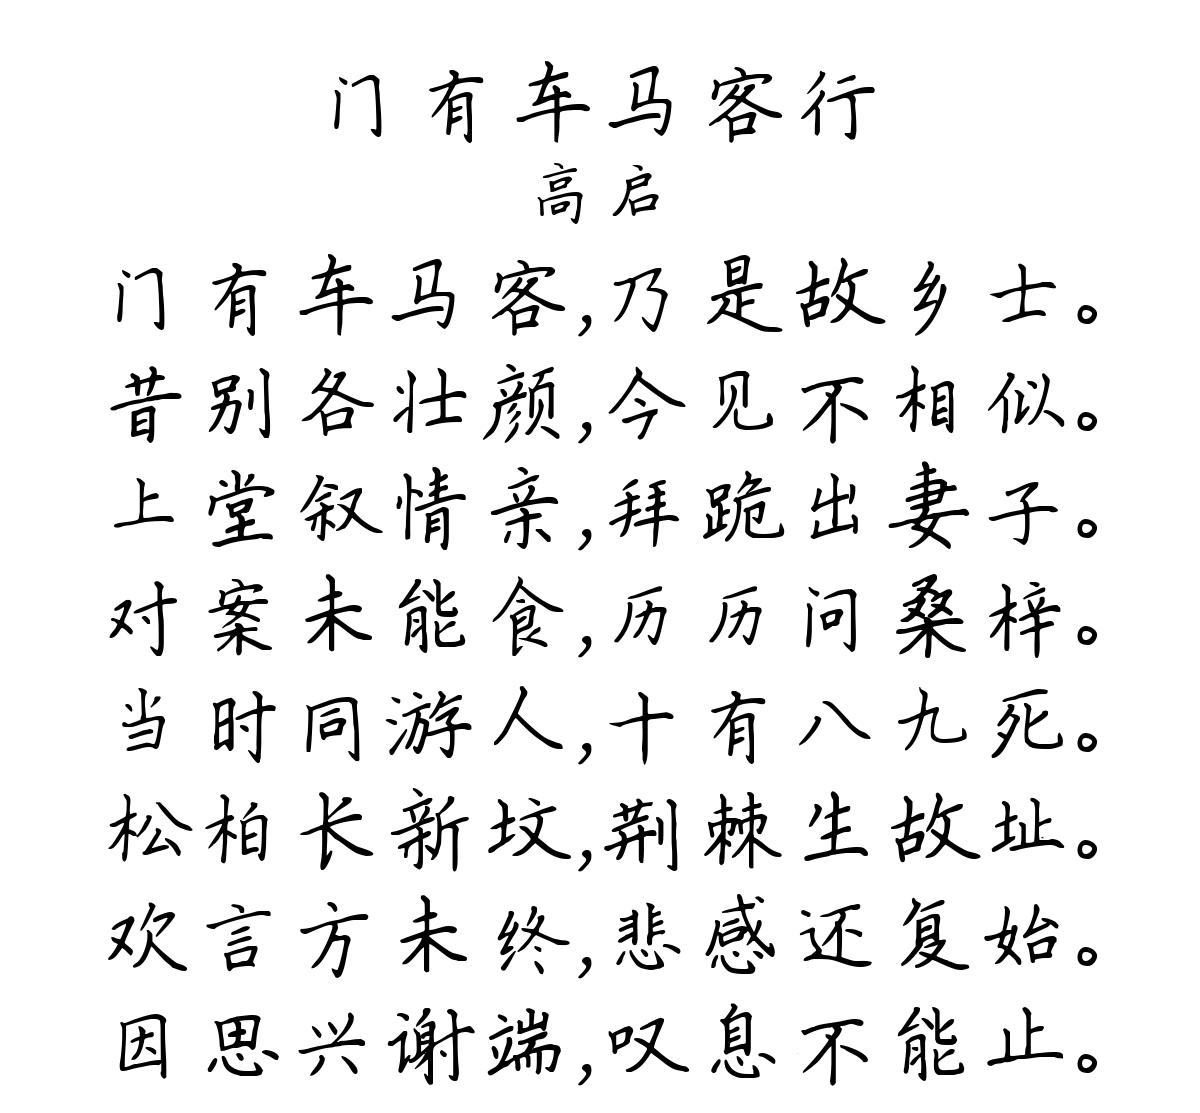 门有车马客行
高启
门有车马客,乃是故乡士。
昔别各壮颜,今见不相似。
上堂叙情亲,拜跪出妻子。
对案未能食,历历问桑梓。
当时同游人,十有八九死。
松柏长新坟,荆棘生故址。
欢言方未终,悲感还复始。
因思兴谢端,叹息不能止。